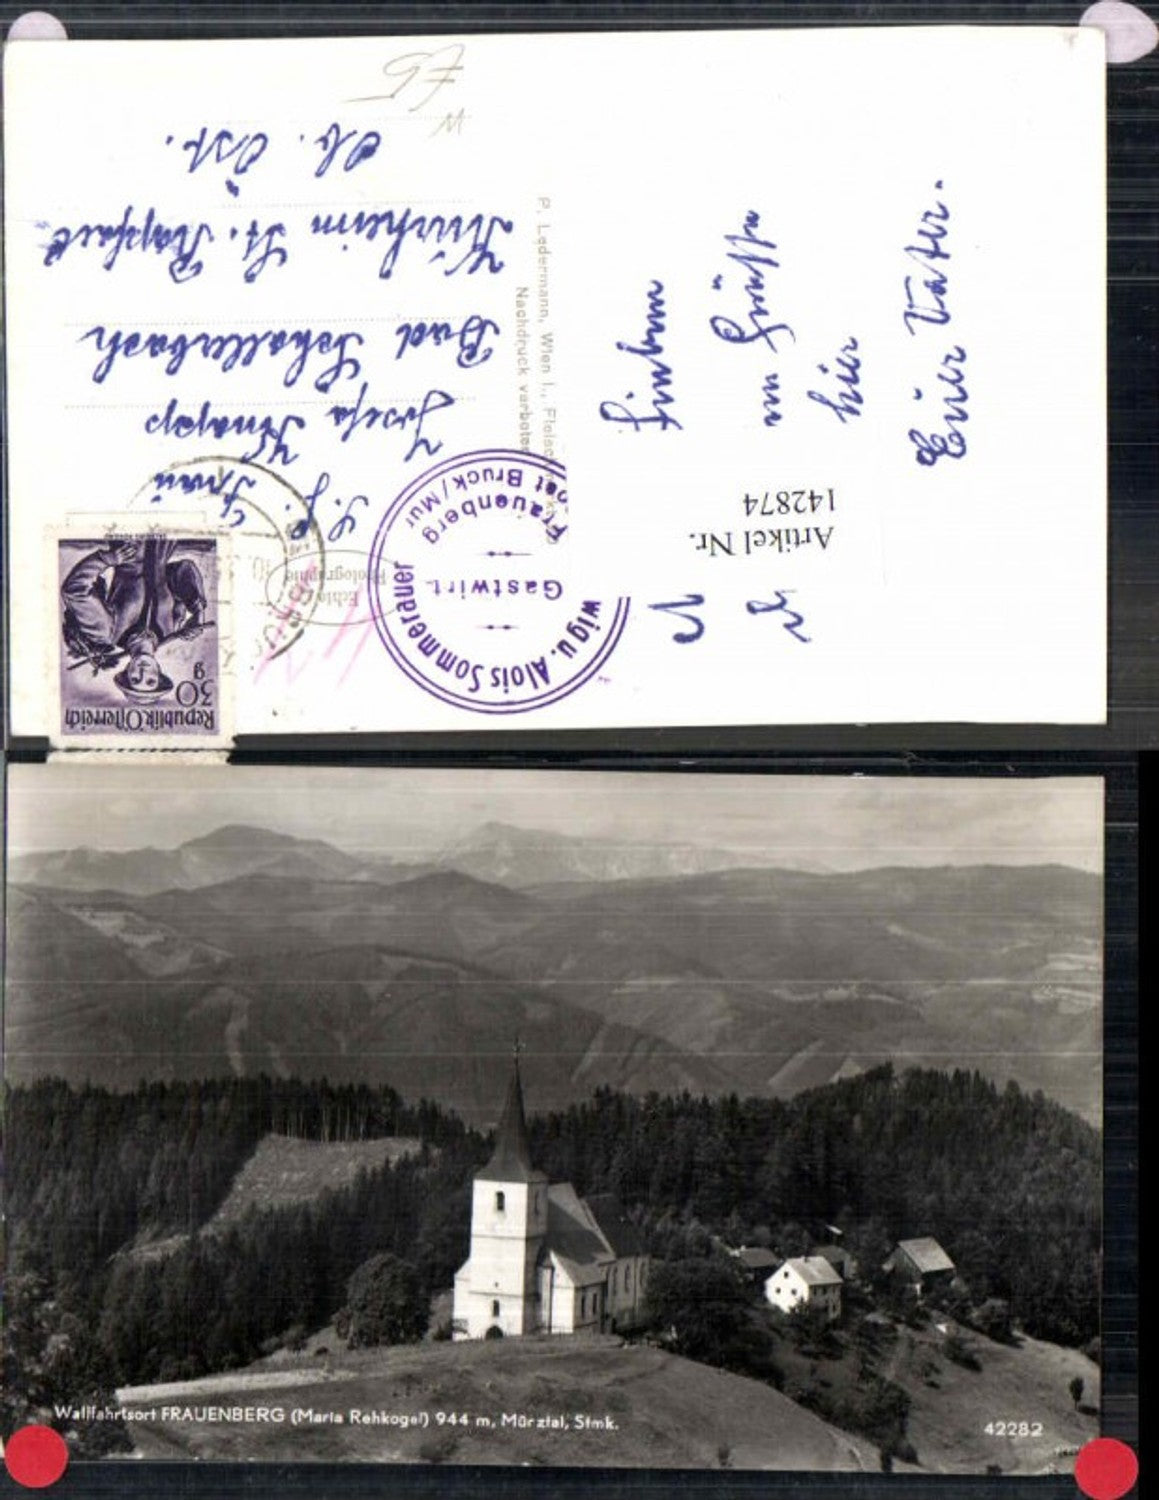 Republik Österreich
30
g
Echte
Photographie
wig u. Alois Sommerauer
Gastwirt
Frauenberg
ost Bruck/Mur
Josefa Knapp
Bad Schallerbach
Kurheim St. Raphael
Ob. Öst.
P. Ledermann, Wien I.,
Nachdruck verboten
Artikel Nr.
142874
hier
Euer Vater.
Wallfahrtsort FRAUENBERG (Maria Rehkogel) 944 m, Mürztal, Stmk.
42282